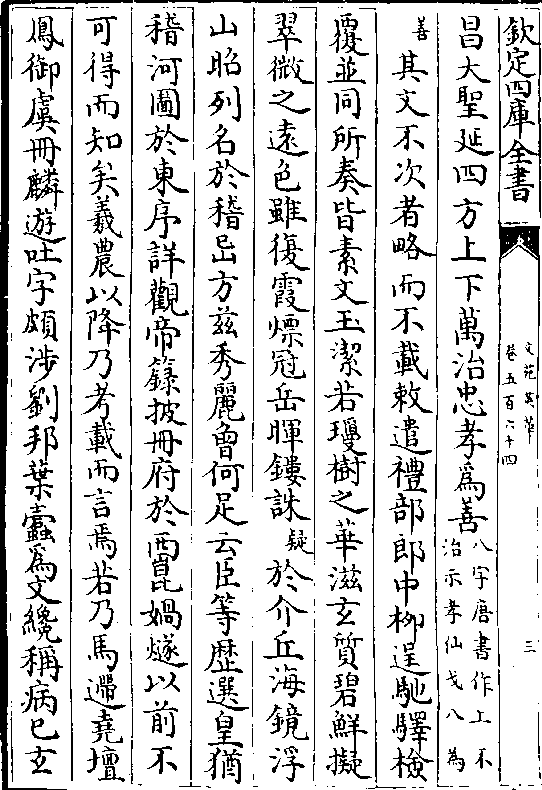 欽定四庫全書
文苑英華
卷五百六十四
三
昌大聖延四方上下萬治忠孝為善八字唐書作上不治示孝仙戈八為
善其文不次者略而不載敕遣禮部郎中柳逞馳驛檢
覆並同所奏皆素文玉潔若瓊樹之華滋玄質碧鮮擬
翠微之遠色雖復霞熛冠岳暉鏤誅疑於介丘海鏡浮
山昭列名於稽岊方兹秀麗曾何足云臣等歴選皇猶
稽河圖於東序詳觀帝籙披冊府於西崑媧燧以前不
可得而知矣羲農以降乃考載而言焉若乃馬遰堯壇
鳳御虞冊麟遊吐字頗涉劉邦葉蠹為文纔稱病已玄